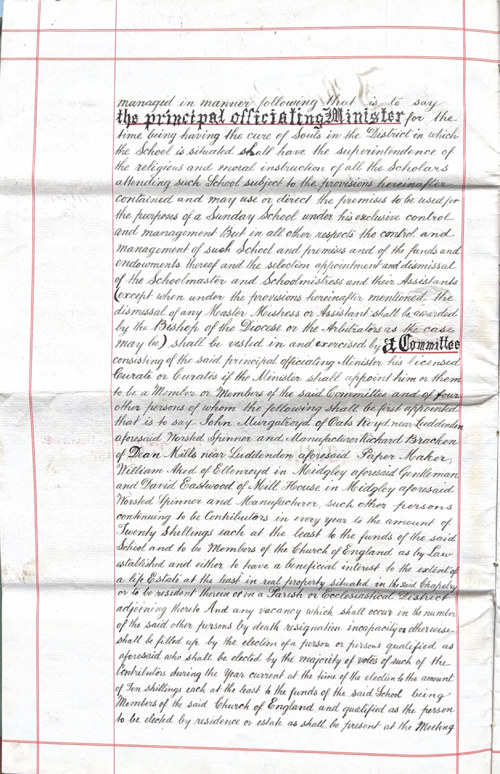 managed in manner following that is to say
the principal officiating Minister for the
time being having the cure of Souls in the District in which
the School is situated shall have the superintendence of
the religious and moral instruction of all the Scholars
attending such School subject to the provisions hereinafter
contained and may use or direct the premises to be used for
the purposes of a Sunday School under his exclusive control
and management But in all other respects the control and
management of such School and premises and of the funds and
endowments thereof and the selection appointment and dismissal
of the Schoolmaster and Schoolmistress and their Assistants
(except when under the provisions hereinafter mentioned the
dismissal of any Master Mistress or Assistant shall be awarded
by the Bishop of the Diocese or the Arbitrators as the case
may be) shall be vested in and exercised by a Committee
consisting of the said principal officiating Minister his licensed
Curate or Curates if the Minister shall appoint him or them
to be a Member or Members of the said Committee and of four
other persons of whom the following shall be first appointed
that is to say John Murgatroyd of Oats Royd near Luddenden
aforesaid Worsted Spinner and Manufacturer Richard Bracken
of Dean Mills near Luddenden aforesaid Paper Maker,
William Aked of Ellenroyd in Midgley aforesaid Gentleman
and David Eastwood of Mill House in Midgley aforesaid
Worsted Spinner and Manufacturer, such other persons
continuing to be Contributors in every year to the amount of
Twenty Shillings each at the least to the funds of the said
School and to be Members of the Church of England as by Law
established and either to have a beneficial interest to the extent of
a life Estate at the least in real property situated in the said Chapelry
or to be resident therein or in a Parish or Ecclesiastical District
adjoining thereto And any vacancy which shall occur in the number
of the said other persons by death resignation incapacity or otherwise
shall be filled up by the election of a person or persons qualified as
aforesaid who shall be elected by the majority of votes of such of the
Contributors during the Year current at the time of the election to the amount
of Ten shillings each at the least to the funds of the said School being
Members of the said Church of England and qualified as the person
to be elected by residence or estate as shall be present at the Meeting